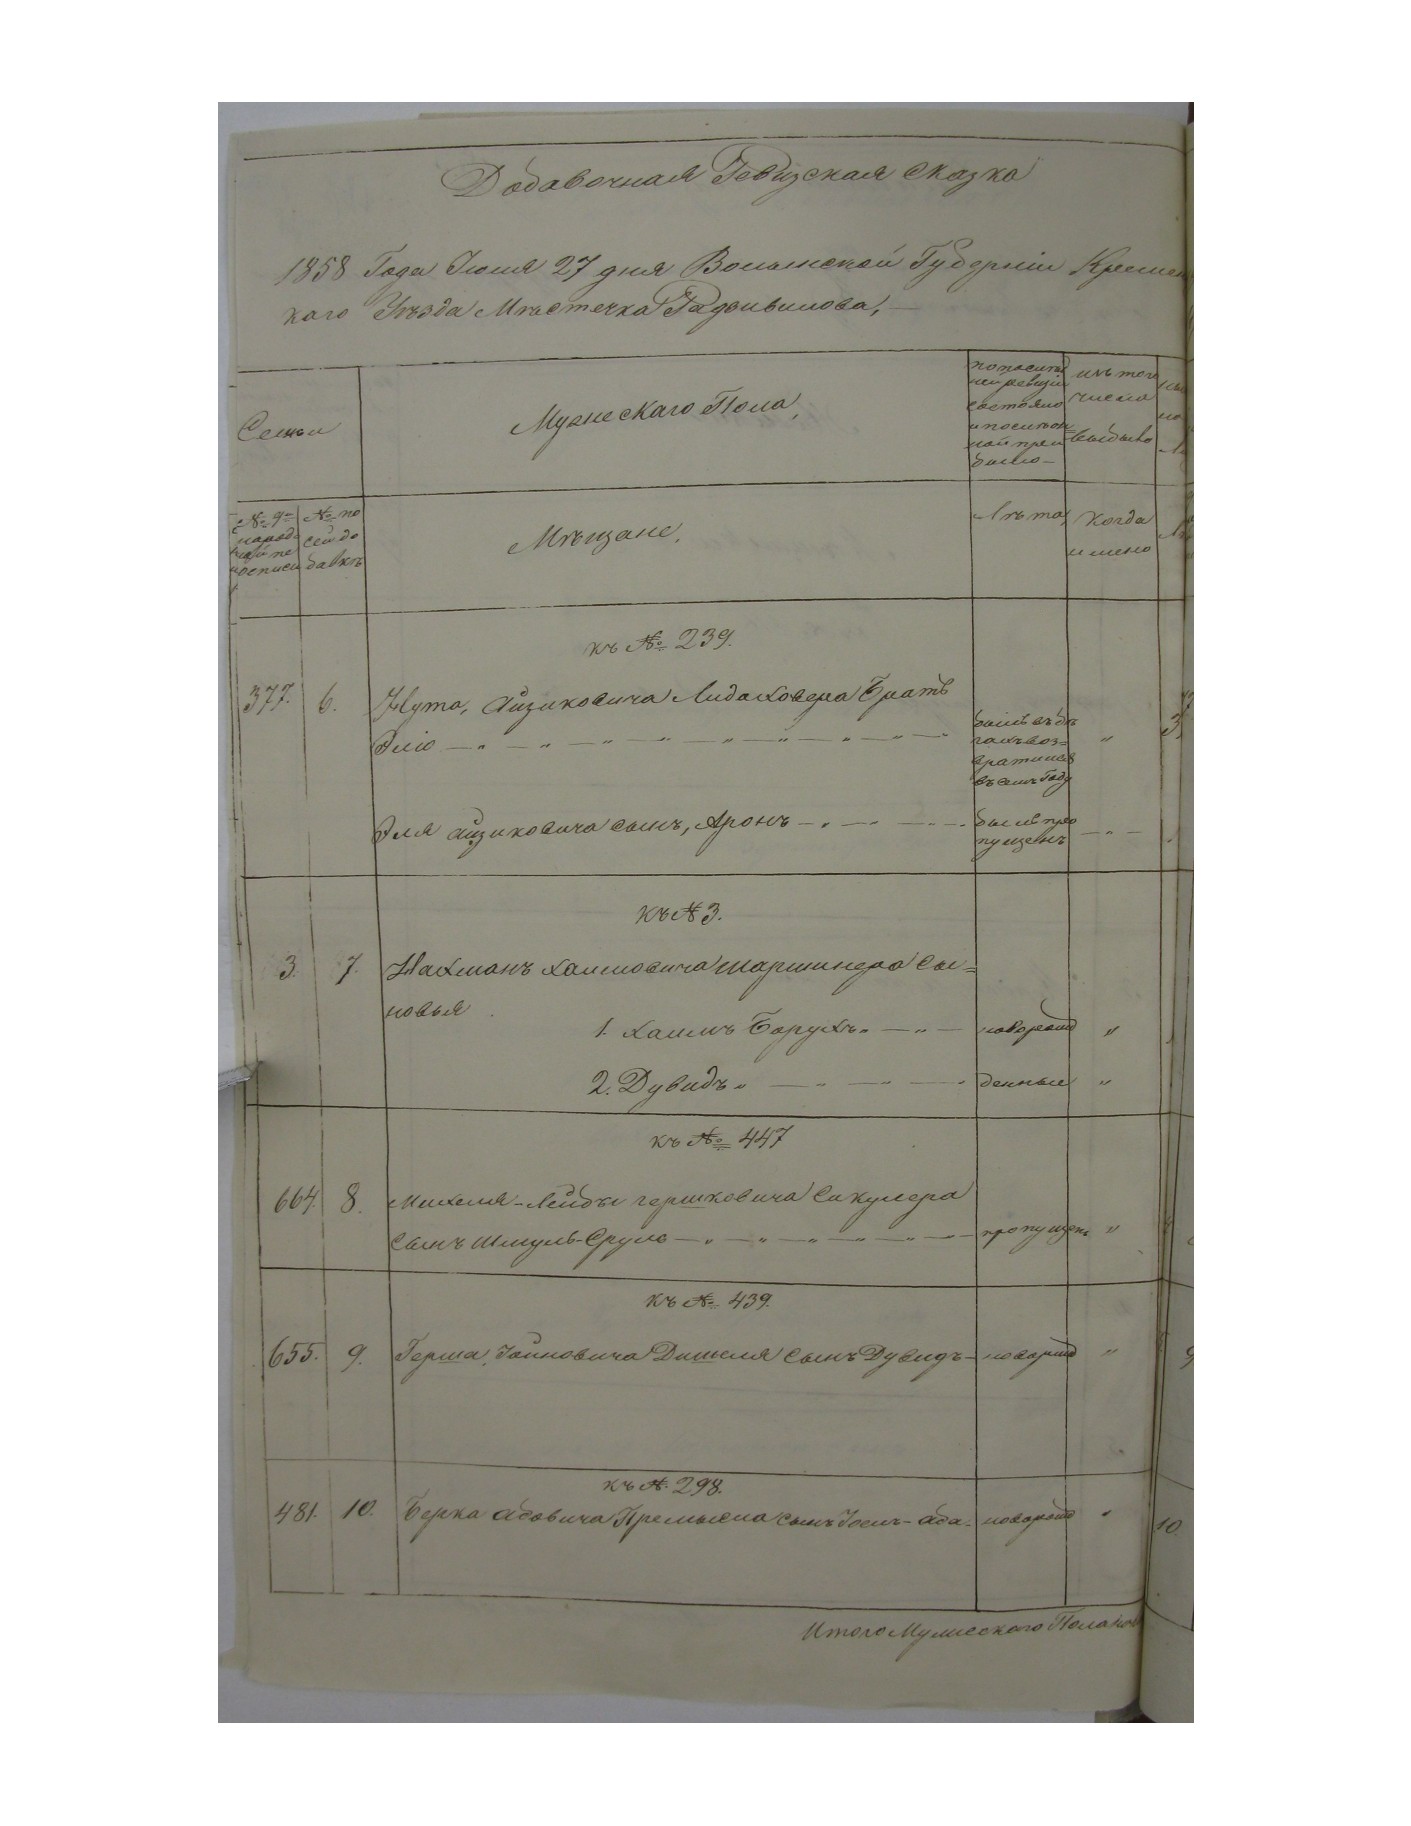 Добавочная Ревизская Сказка
1858 Года Июня 27 дня Волынской Губерніи Кремен
каго Уезда Мѣстечка Радзивилова,
Семьи
Мужескаго Пола,
по послѣд
ней ревизіи
состояло
и послѣ он
ой при
было
изъ того
числа
выбыло
№ по
сей до
бавкѣ
Мѣщане,
Лѣта,
Когда
имено
къ № 239.
377. 6. Нута, Айзиковича Лидаховера Братъ
Эліо — „ — „ — „ — „ — „ — „ — „ — „ —
былъ въ бѣ
гахъ воз=
вратился
въ семъ Году
„
Эля Айзиковича сынъ, Аронъ — „ — — „ —
былъ про
пущенъ
— „ —
къ № 3.
3. 7. Нахманъ Хаимовича Шаршнера Сы=
новья
1. Хаимъ Борухъ „ — „ — новорожд „
2. Дувидъ „ — „ — „ — „ денные „
къ № 447
664. 8. Михеля-Лейбы Гершковича Сикулера
Сынъ Шмуль-Сруль — „ — „ — „ — „ — „ — пропущенъ „
къ № 439.
655. 9. Герша, Іойновича Дишеля Сынъ Дувидъ — новорожд „
къ № 298.
481. 10. Берка Абовича Премысла сынъ Іосъ-Аба. новорожд „
10.
Итого Мужескаго Пола